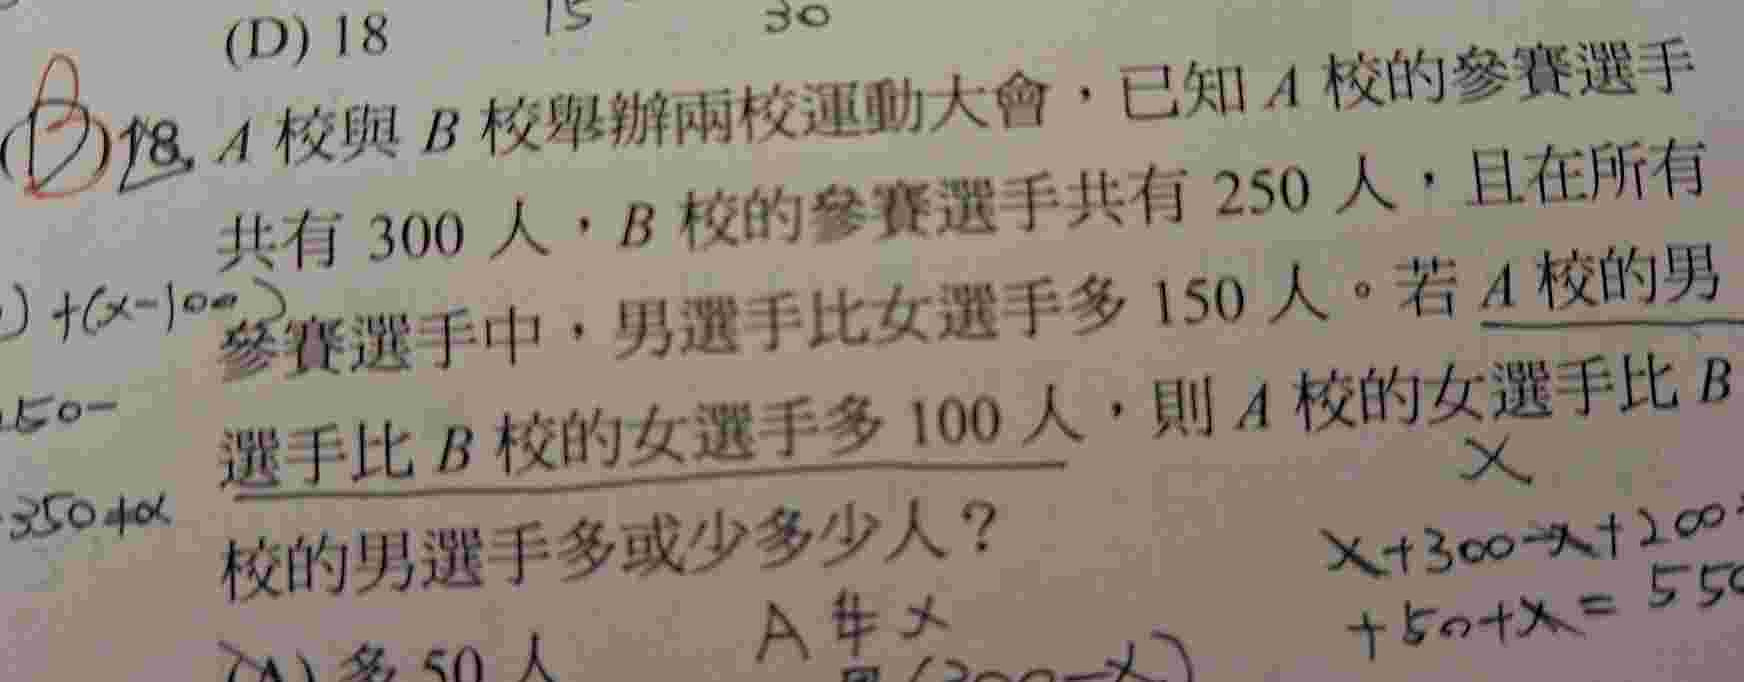 (D) 18
15
30
(B) 18. A 校與 B 校舉辦兩校運動大會，已知 A 校的參賽選手
共有 300 人，B 校的參賽選手共有 250 人，且在所有
) +(x-100)
參賽選手中，男選手比女選手多 150 人。若 A 校的男
150-
選手比 B 校的女選手多 100 人，則 A 校的女選手比 B
x
350+x
校的男選手多或少多少人？
x+300-x+200
+50+x=550
A 女 x
(A) 多 50 人
男(300-x)